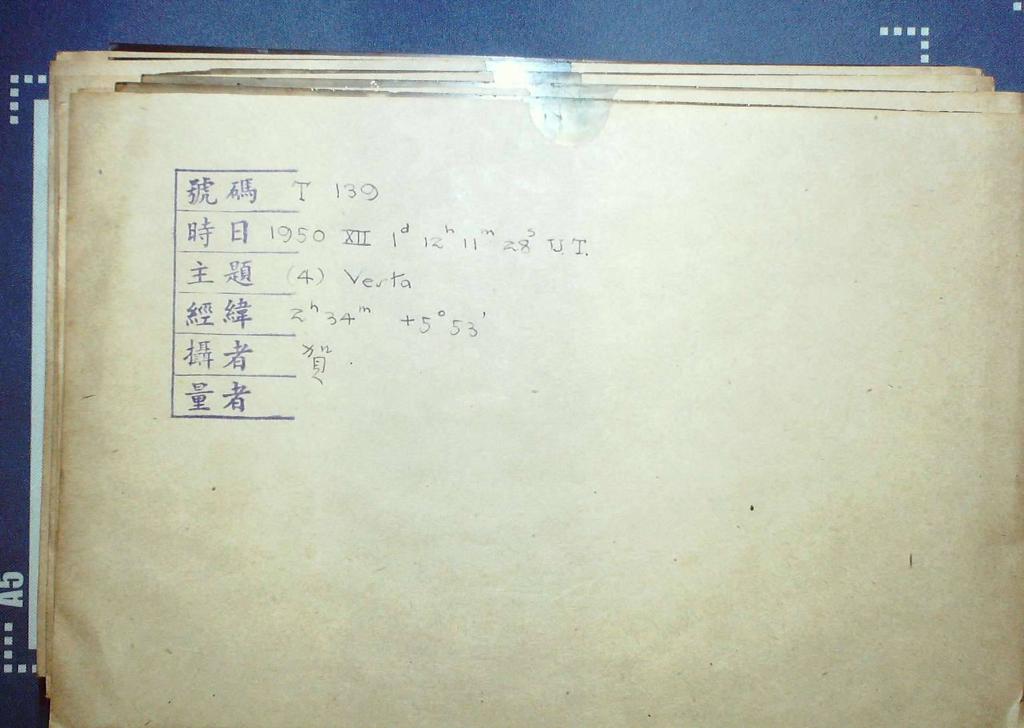 號碼 T 139
時日 1950 XII 1d 12h 11m 28s U.T.
主題 (4) Vesta
經緯 2h 34m +5° 53'
攝者 賀
量者
A5